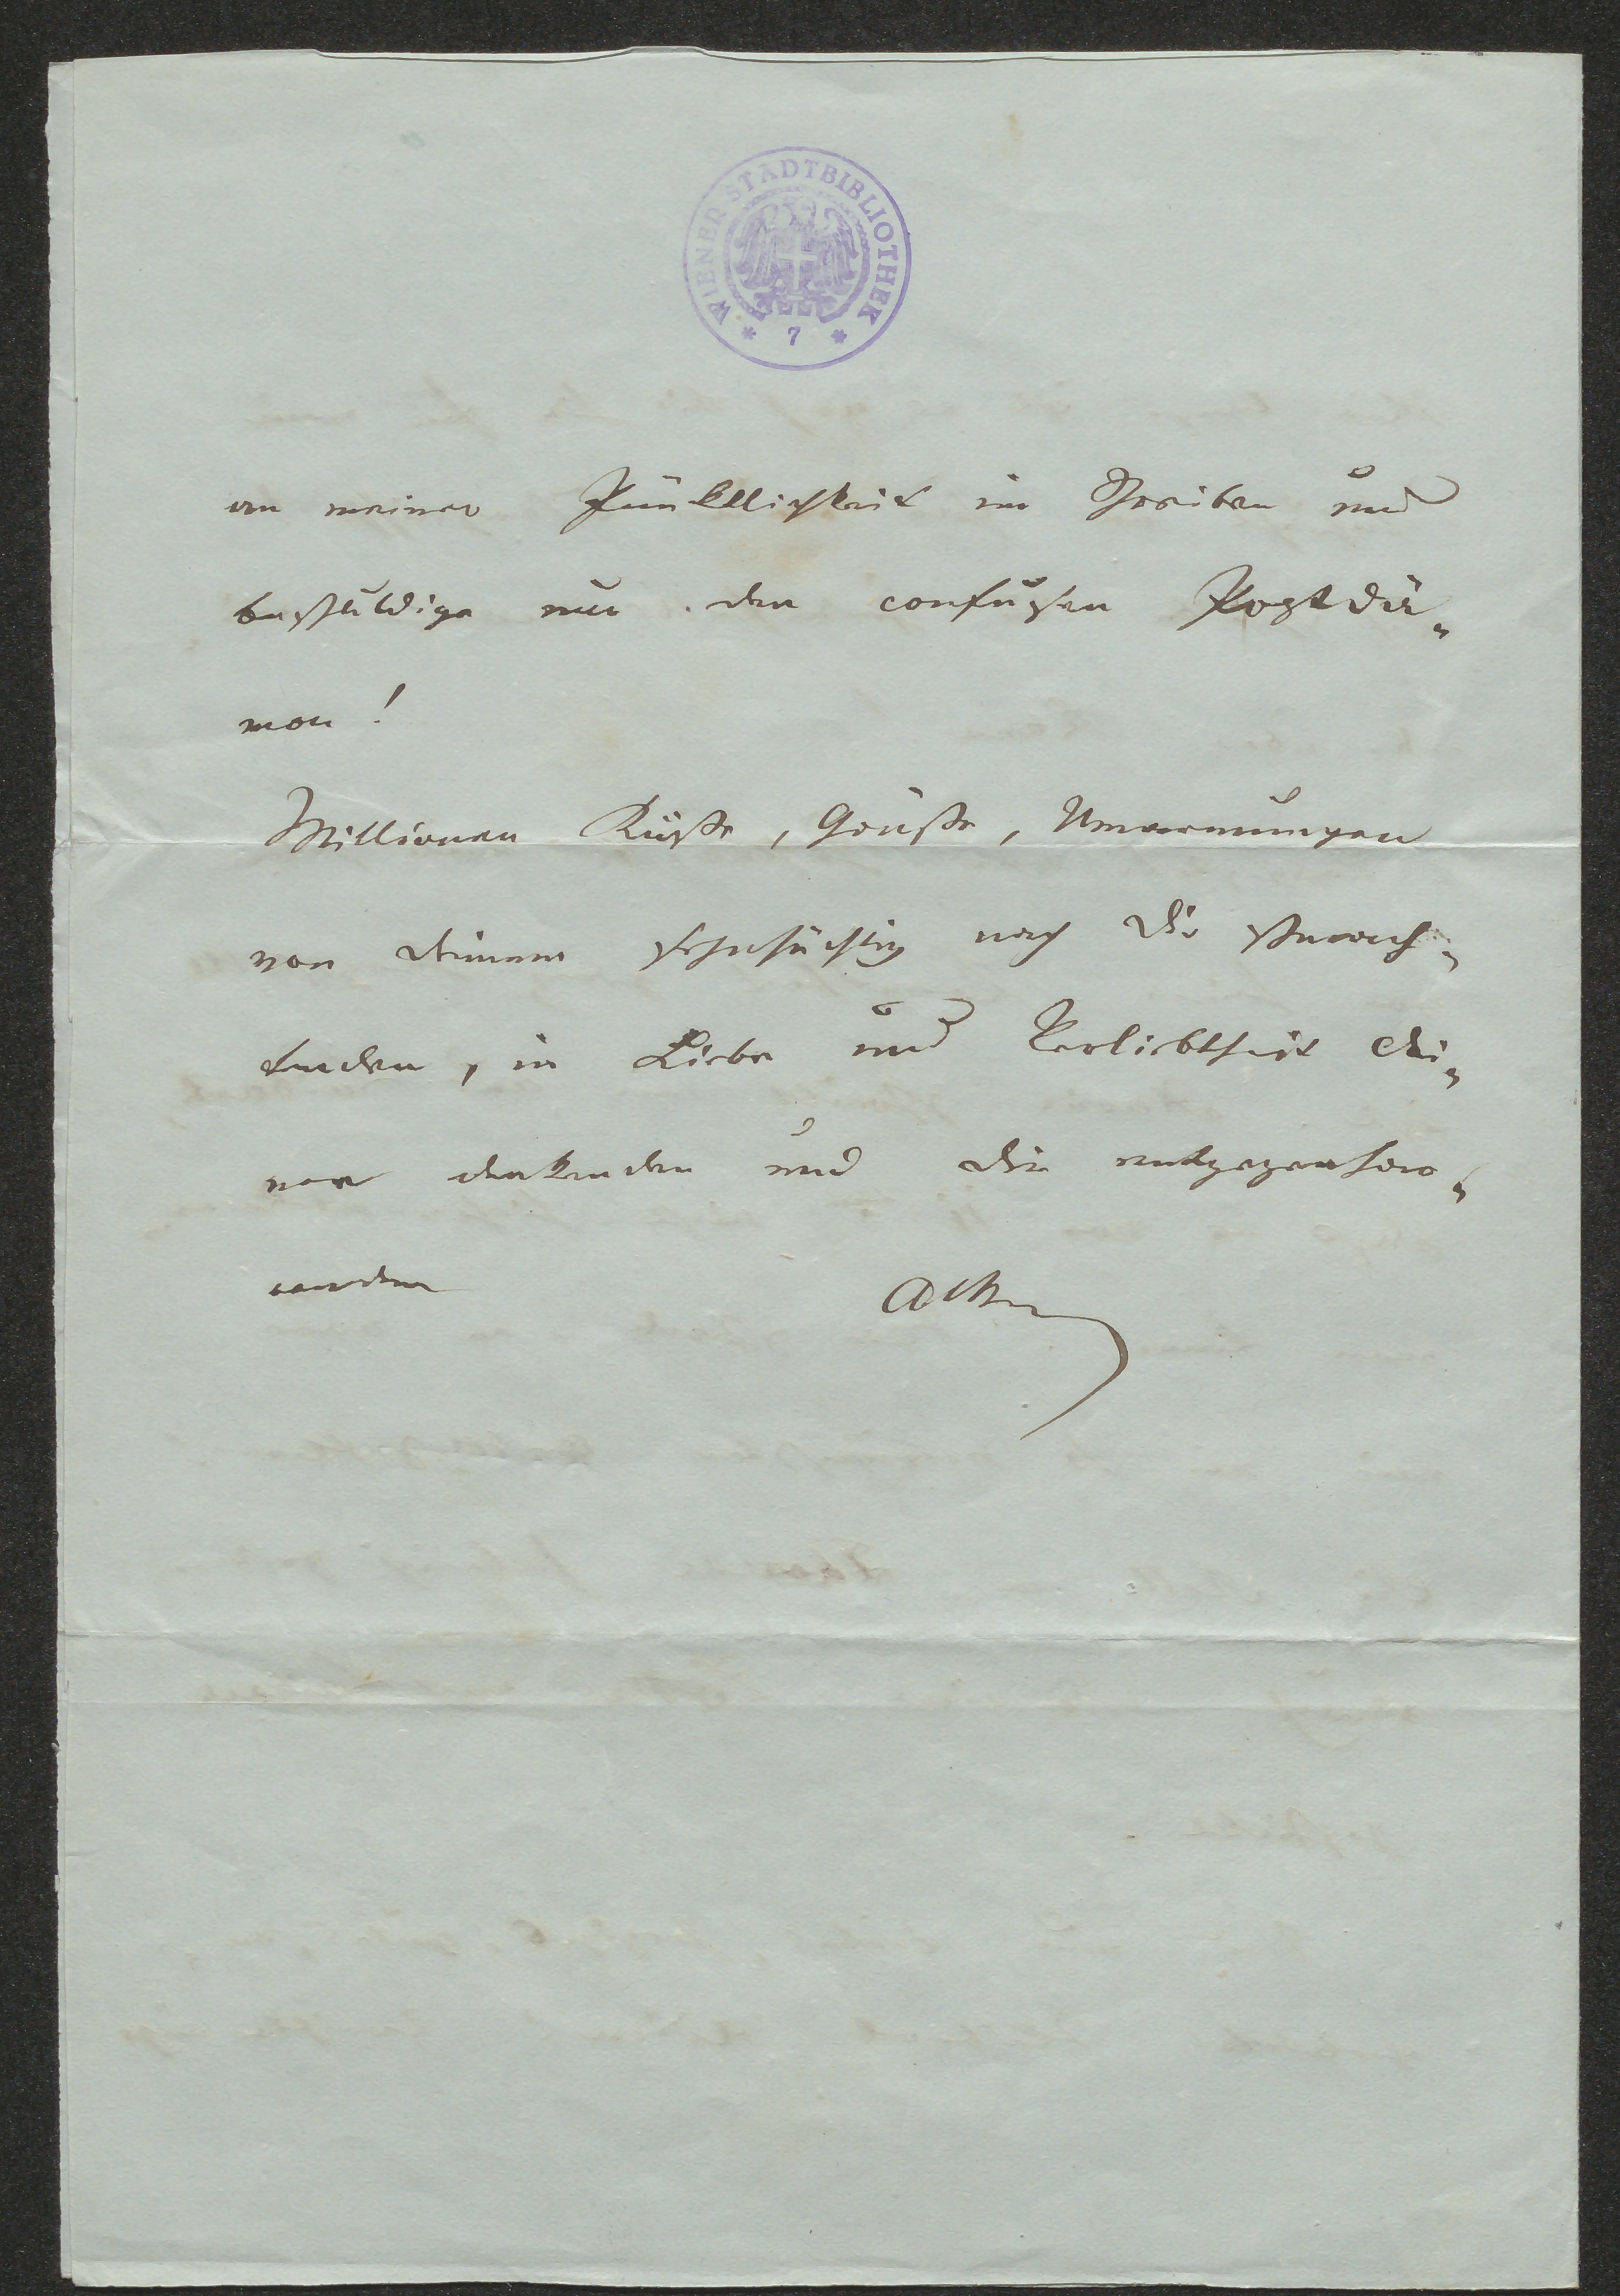 WIENER STADTBIBLIOTHEK
* 7 *
an meiner Pünktlichkeit im Schreiben und
beschuldige nur den confusen Postdä„
mon!
Millionen Küße, Grüße, Umarmungen
von deinem sehnsüchtig nach dir schmach„
tenden, in Liebe und Verliebtheit dei„
ner denkenden und dir entgegenhar„
renden